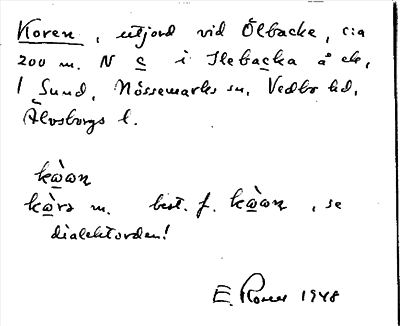 Koren, utjord vid Ölbacke, c:a
200 m. N c i Ilebacka å ek,
1 Sund, Nössemarks sn, Vedbo hd,
Älvsborgs l.
kòɷn
m. best. f. kòɷn, se
dialektorden!
E. 1948